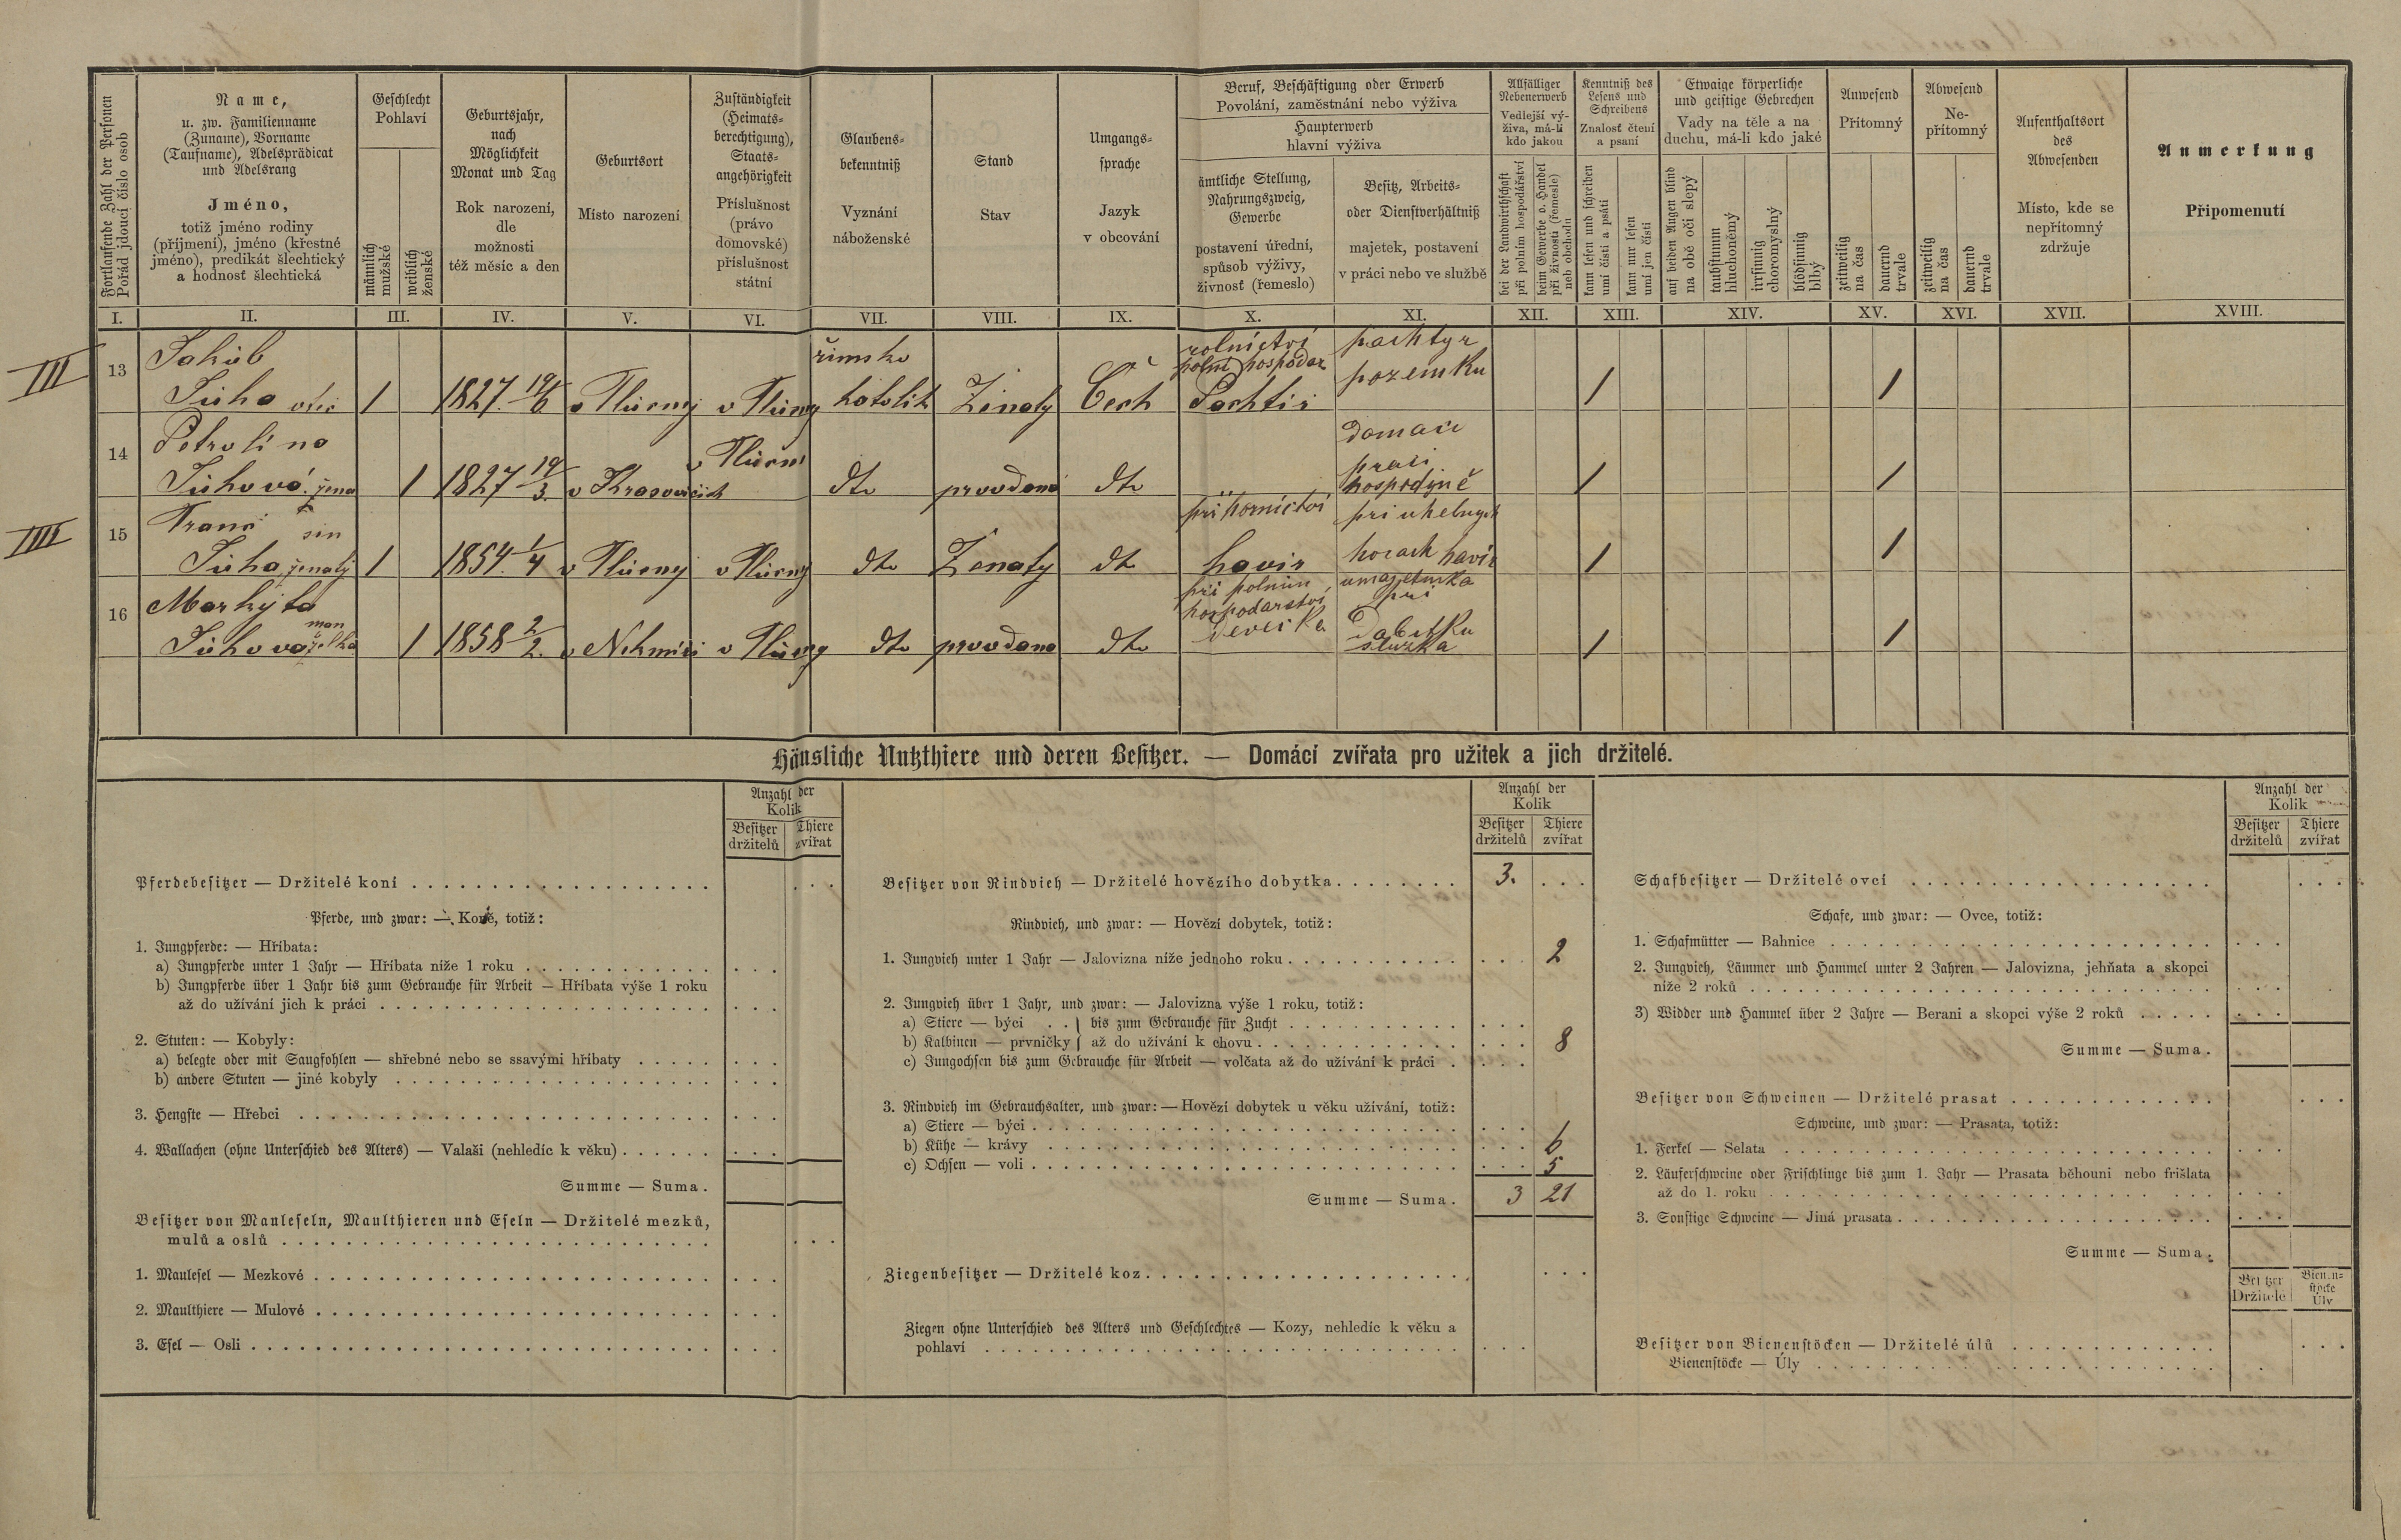 Fortlaufende Zahl der Personen
Pořád jdoucí číslo osob
Name,
u. zw. Familienname
(Zuname), Vorname
(Taufname), Adelsprädicat
und Adelsrang
Jméno,
totiž jméno rodiny
(příjmení), jméno (křestné
jméno), predikát šlechtický
a hodnosť šlechtická
Geschlecht
Pohlaví
männlich
mužské
weiblich
ženské
Geburtsjahr,
nach
Möglichkeit
Monat und Tag
Rok narození,
dle
možnosti
též měsíc a den
Geburtsort
Místo narození
Zuständigkeit
(Heimats-
berechtigung),
Staats-
angehörigkeit
Příslušnost
(právo
domovské)
příslušnost
státní
Glaubens-
bekenntniß
Vyznání
náboženské
Stand
Stav
Umgangs-
sprache
Jazyk
v obcování
Beruf, Beschäftigung oder Erwerb
Povolání, zaměstnání nebo výživa
Haupterwerb
hlavní výživa
ämtliche Stellung,
Nahrungszweig,
Gewerbe
postavení úřední,
spůsob výživy,
živnosť (řemeslo)
Besitz, Arbeits-
oder Dienstverhältniß
majetek, postavení
v práci nebo ve službě
Allfälliger
Nebenerwerb
Vedlejší vý-
živa, má-li
kdo jakou
bei der Landwirthschaft
při polním hospodářství
beim Gewerbe o. Handel
při živnosti (řemesle)
neb obchodu
Kenntniß des
Lesens und
Schreibens
Znalosť čtení
a psaní
kann lesen und schreiben
umí čísti a psáti
kann nur lesen
umí jen čísti
Etwaige körperliche
und geistige Gebrechen
Vady na těle a na
duchu, má-li kdo jaké
auf beiden Augen blind
na obě oči slepý
taubstumm
hluchoněmý
irrsinnig
choromyslný
blödsinnig
blbý
Anwesend
Přítomný
zeitweilig
na čas
dauernd
trvale
Abwesend
Ne-
přítomný
zeitweilig
na čas
dauernd
trvale
Aufenthaltsort
des
Abwesenden
Místo, kde se
nepřítomný
zdržuje
Anmerkung
Připomenutí
I. II. III. IV. V. VI. VII. VIII. IX. X. XI. XII. XIII. XIV. XV. XVI. XVII. XVIII.
III 13 Jakub římsko rolnictví pachtyr
polní hospodar pozemku
Juha otec 1 1827 19/6 v v katolik Ženatý Čech Pachtir 1 1
14 Petrolína domaci
praci
Juhová žena 1 1827 19/3. v Krasovicich dto provdaná dto hospodyně 1 1
IIII 15 Franc sin při hornictví pri uhelnych
Juha ženatý 1 1854 1/4 v v dto Ženatý dto havir horach havir 1 1
16 Markyta man při polnim
hospodarstvi pri
Juhova želka 1 1858 2/2. v v dto provdana dto Devečka Dobytku
služka 1 1
Häusliche Nutzthiere und deren Besitzer. — Domácí zvířata pro užitek a jich držitelé.
Anzahl der
Kolik
Besitzer
držitelů
Thiere
zvířat
Pferdebesitzer — Držitelé koní
Pferde, und zwar: — Koně, totiž:
1. Jungpferde: — Hříbata:
a) Jungpferde unter 1 Jahr — Hříbata níže 1 roku
b) Jungpferde über 1 Jahr bis zum Gebrauche für Arbeit — Hříbata výše 1 roku
až do užívání jich k práci
2. Stuten: — Kobyly:
a) belegte oder mit Saugfohlen — shřebné nebo se ssavými hříbaty
b) andere Stuten — jiné kobyly
3. Hengste — Hřebci
4. Wallachen (ohne Unterschied des Alters) — Valaši (nehledíc k věku)
Summe — Suma.
Besitzer von Mauleseln, Maulthieren und Eseln — Držitelé mezků,
mulů a oslů
1. Maulesel — Mezkové
2. Maulthiere — Mulové
3. Esel — Osli
Anzahl der
Kolik
Besitzer
držitelů
Thiere
zvířat
Besitzer von Rindvieh — Držitelé hovězího dobytka 3.
Rindvieh, und zwar: — Hovězí dobytek, totiž:
1. Jungvieh unter 1 Jahr — Jalovizna níže jednoho roku 2
2. Jungvieh über 1 Jahr, und zwar: — Jalovizna výše 1 roku, totiž:
a) Stiere — býci } bis zum Gebrauche für Zucht
b) Kalbinen — prvničky } až do užívání k chovu 8
c) Jungochsen bis zum Gebrauche für Arbeit — volčata až do užívání k práci
3. Rindvieh im Gebrauchsalter, und zwar: — Hovězí dobytek u věku užívání, totiž:
a) Stiere — býci
b) Kühe — krávy 6
c) Ochsen — voli 5
Summe — Suma. 3 21
Ziegenbesitzer — Držitelé koz
Ziegen ohne Unterschied des Alters und Geschlechtes — Kozy, nehledíc k věku a
pohlaví
Anzahl der
Kolik
Besitzer
držitelů
Thiere
zvířat
Schafbesitzer — Držitelé ovcí
Schafe, und zwar: — Ovce, totiž:
1. Schafmütter — Bahnice
2. Jungvieh, Lämmer und Hammel unter 2 Jahren — Jalovizna, jehňata a skopci
níže 2 roků
3) Widder und Hammel über 2 Jahre — Berani a skopci výše 2 roků
Summe — Suma.
Besitzer von Schweinen — Držitelé prasat
Schweine, und zwar: — Prasata, totiž:
1. Ferkel — Selata
2. Läuferschweine oder Frischlinge bis zum 1. Jahr — Prasata běhouni nebo frišlata
až do 1. roku
3. Sonstige Schweine — Jiná prasata
Summe — Suma.
Držitelé
Úly
Besitzer von Bienenstöcken — Držitelé úlů
Bienenstöcke — Úly